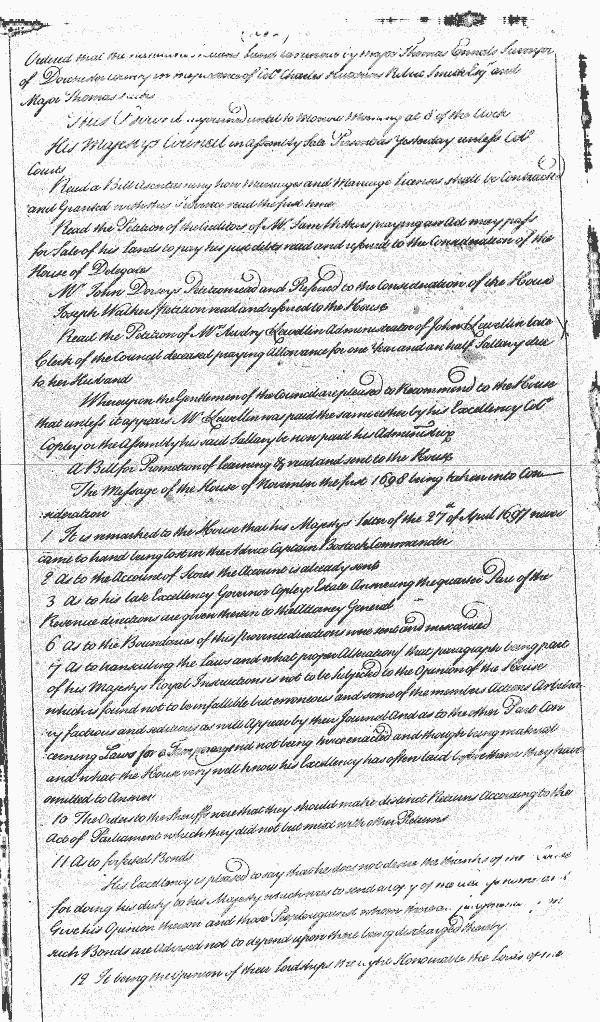 Ordered that the be by Major Thomas Ennals Surveyor
of Dorchester County in the presence of Coll Charles Hutchins Esqr and
Major Thomas
This Board adjourned until to Morrow Morning at 8 of the Clock
His Majestys Council in Assembly Sate Present as Yesterday unless Coll
Courts
Read a Bill Ascertaining how Marriages and Marriage Licenses shall be Contracted
and Granted within this Province read the first time
Read the Petition of the Creditors of Mr Saml Withers praying an Act may pass
for Sale of his Lands to pay his just debts read and referred to the Consideration of the
House of Delegates
Mr John Dorseys Petition read and Referred to the Consideration of the House
Joseph Walkers Petition read and referred to the House
Read the Petition of Mrs Audry Lewellin Administratrix of John Lewellin late
Clerk of the Council deceased praying Allowance for one Year and an half Sallary due
to her Husband
Whereupon the Gentlemen of the Council are pleased to Recommend to the House
that unless it appears Mr Lewellin was paid the same either by his Excellency Coll
Copley or the Assembly his said Sallary be now paid his Administratrix
A Bill for Promotion of learning &c read and sent to the House
The Message of the House of November the first 1698 being taken into Con
sideration
1 It is remarked to the House that his Majestys letter of the 27th of April 1697 never
came to hand being lost in the Advice Captain Bostock Commander
2 As to the Account of Stores the Account is already sent
3 As to his late Excellency Governor Copleys Estate Answering the quarter Part of the
Revenue directions are given therein to the Attorney General
6 As to the Boundaries of this province directions were sent and miscarried
7 As to transcribing the Laws and what proper Alterations that paragraph being part
of his Majestys Royal Instructions is not to be subjected to the Opinion of the House
which is found not to be infallible but erronious and some of the members Actions Arbitra
ry factious and seditious as will Appear by their Journal And as to the other Part Con
cerning Laws for a Temporary end not being twice enacted and though being material
and what the House very well know his Excellency has often laid before them they have
omitted to Answer
10 The Orders to the Sheriffs were that they should make distinct Returns According to the
Act of Parliament which they did not but mixt with other Returns
11 As to forfeited Bonds
His Excellency is pleased to say that he does not desire the thanks of the
for doing his duty to his Majesty which was to send a Copy of
Give his Opinion thereon and those People against whom there are judgments
such Bonds are Advised not to depend upon there being discharged thereby
12 It being the Opinion of their lordships the right Honourable the Lords of the